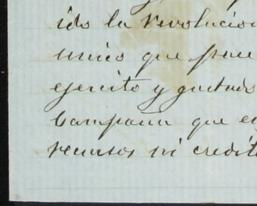 ido la revolucion
unico que pue
ejercito y gastos
Campaña que e
recursos ni credito